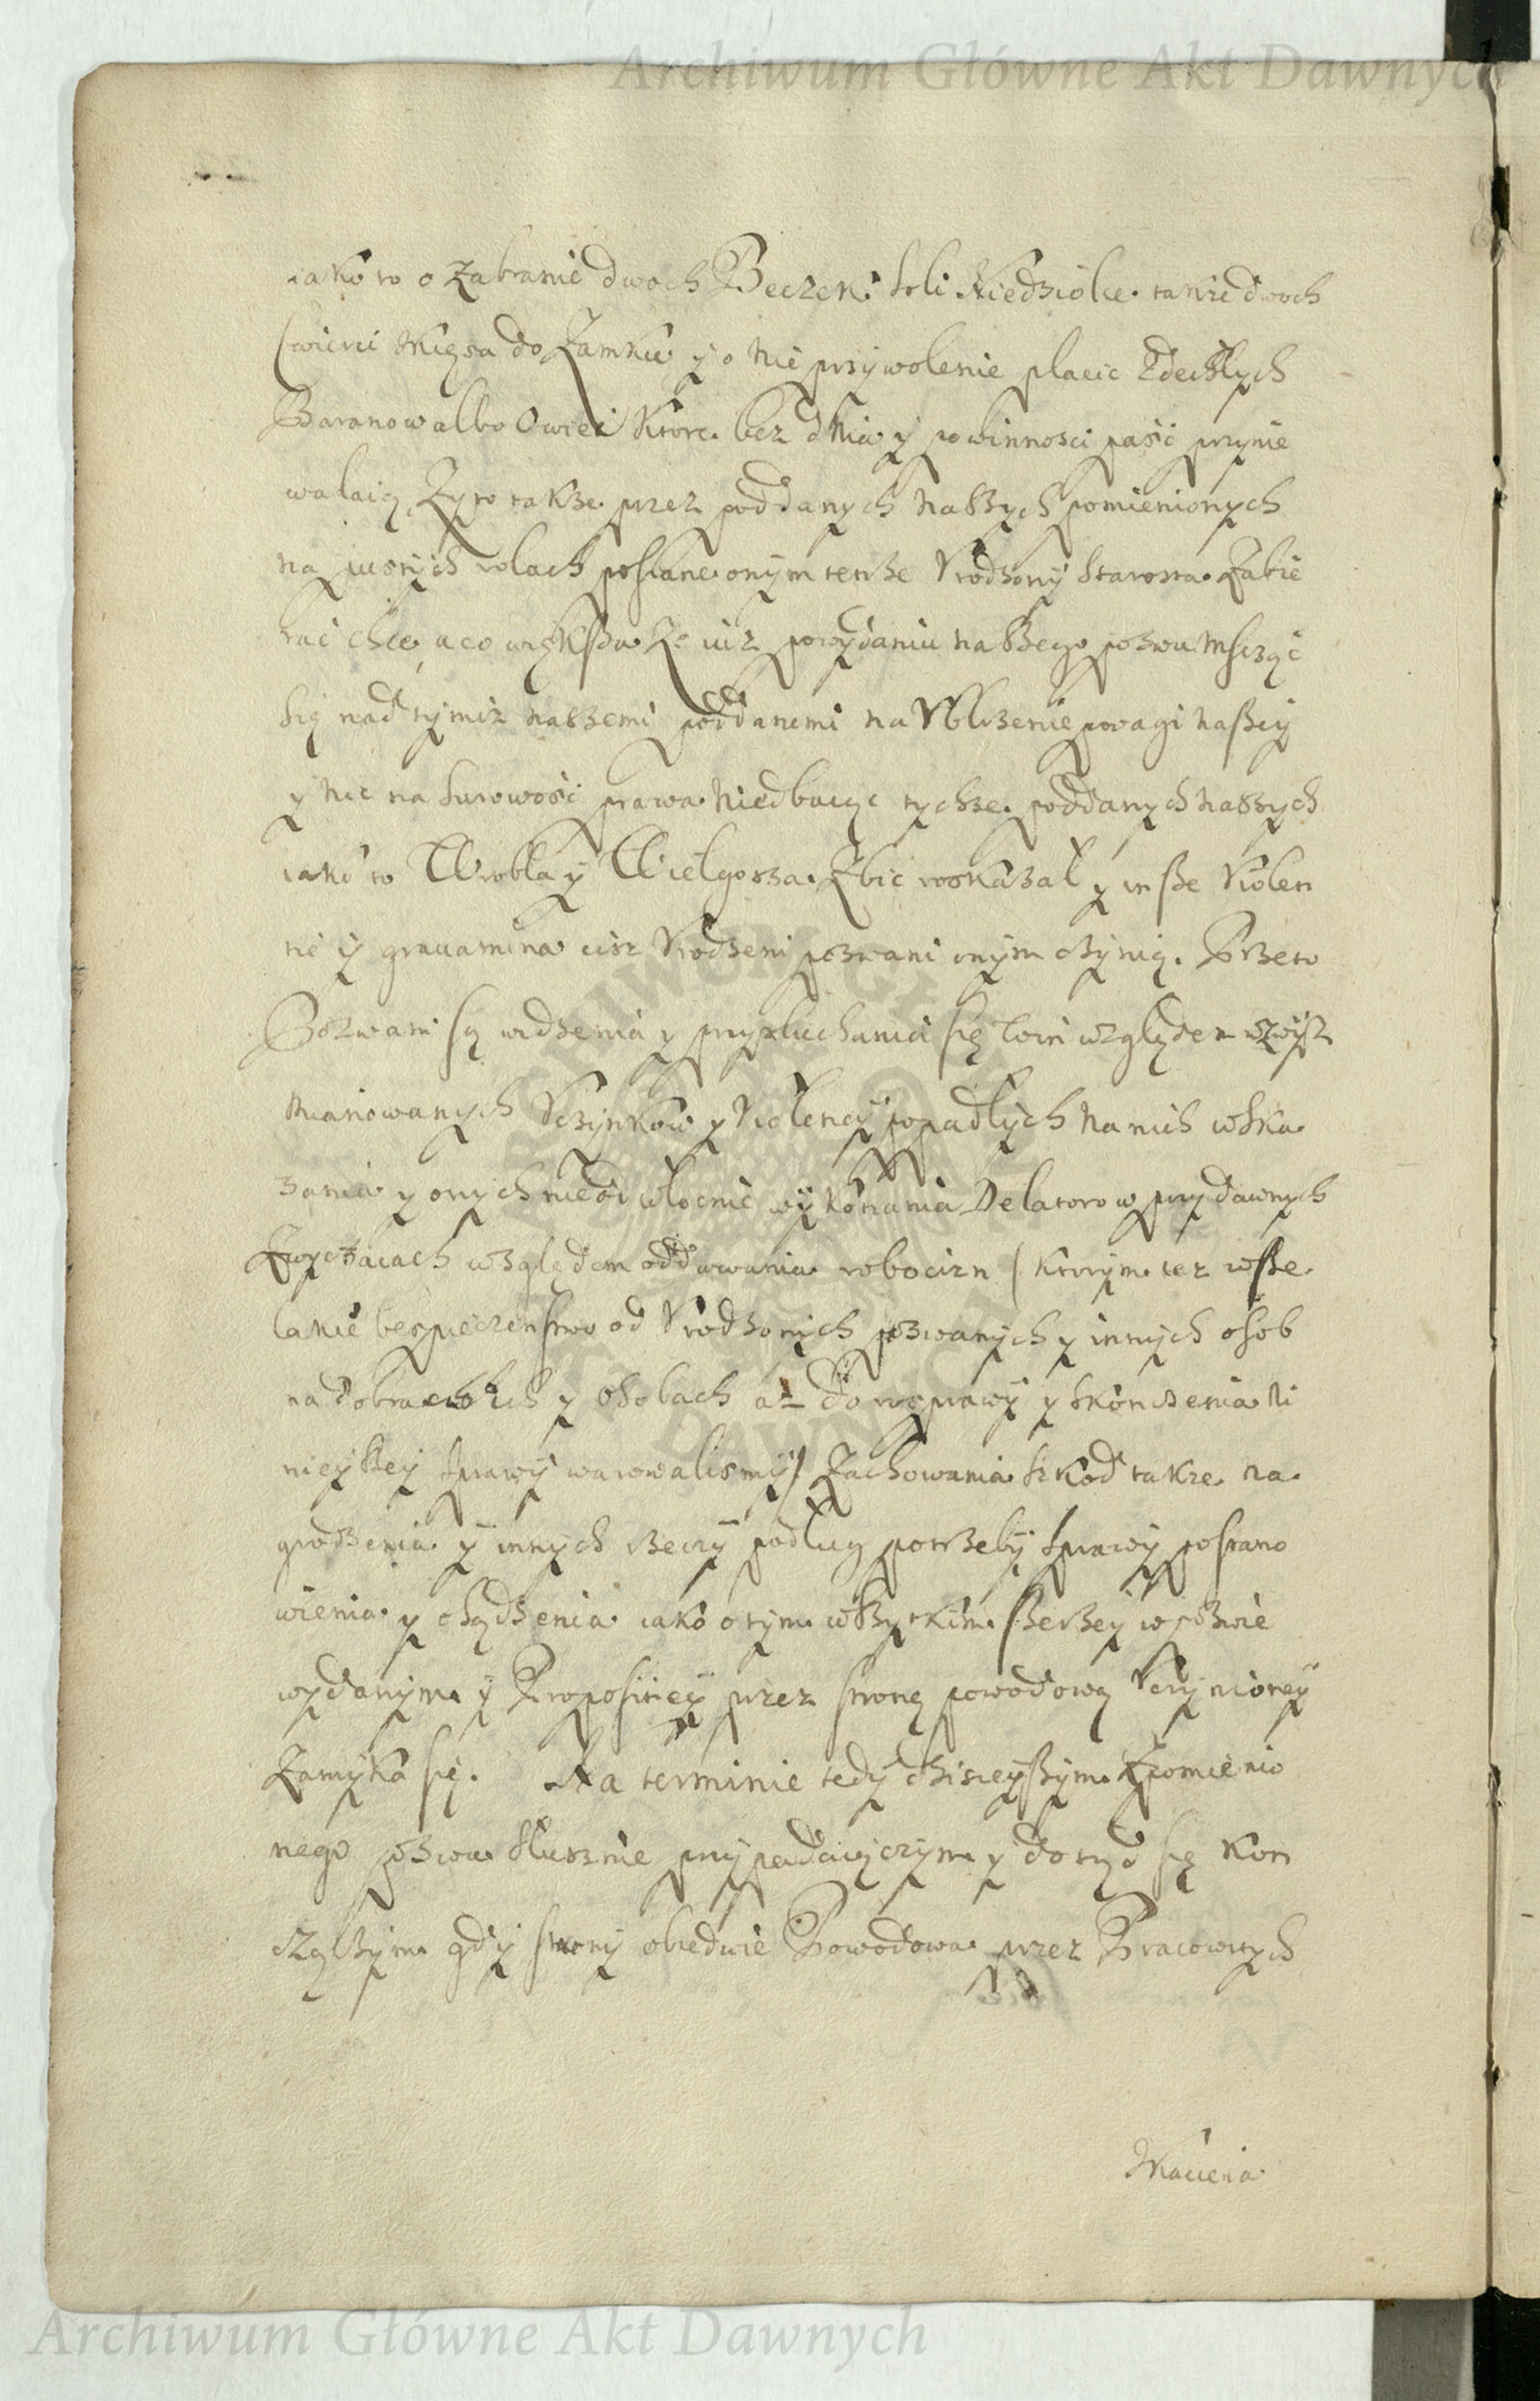 Archiwum Główne Akt Dawnych
iako to o Zabranie dwoch Beczek Soli Niedziolce takze dwoch
Cwierci Mięsa do Zamku y o nie przywolenie placic Zdechłych
Baranow albo Owiec Ktore bez dnia y powinnosci pasić przynie
walaią Zyto takze przez poddanych naszych pomienionych
na pustych rolach posiane onym tenze Vrodzony Starosta Zabie
rac chce, a co więksża Ze iuz po wydaniu naszego pozwu mscząc
się nad tymiz naszemi poddanemi na Vbliżenie powagi naszey
y nic na surowość prawa niedbaiąc tychze poddanych naszych
iako to Wrobla y Wielgosza Zbic roskazał y insze Violen
tie y gravamina ciz Vrodzeni pozwani onym czynią. Przeto
Pozwani są widzenia y przysłuchania się win względem wzwysz
mianowanych Vczynkow y Violencyi popadłych na nich wska
zania y onych nieodwłocnie wykonania Delatorow przy dawnych
Zwyczaiach względem oddawania robocizn (ktorym tez wsze
lakie bespieczenstwo od Vrodzonych pozwanych y innych osob
na dobrach ich y osobach az do rosprawy y skonczenia ni
nieyszey sprawy warowalismy) Zachowania szkod takze na
grodzenia y innych rzeczy podług potrzeby sprawy postano
wienia y osądzenia iako o tym wszytkim szerzey w pozwie
wydanym y Propositiey przez stronę powodową Vczynioney
Zamyka się. Na terminie tedy dzisieyszym z pomienio
nego pozwu słusznie przypadaiączym y dotąd się kon
czączym gdy strony obiedwie Powodowa przez Pracowitych
Macieia
Archiwum Główne Akt Dawnych